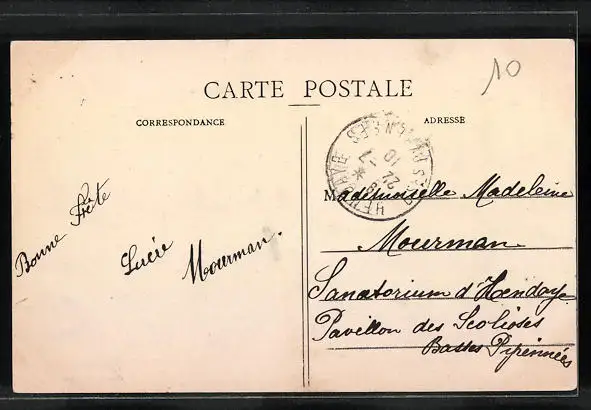 10
CARTE POSTALE
CORRESPONDANCE
ADRESSE
Bonne Fête
Lucie Mourman.
HENDAYE
22 -7
10
Mademoiselle Madeleine
Mourman.
Sanatorium d'Hendaye
Pavillon des Scolioses
Basses Pyrénnées